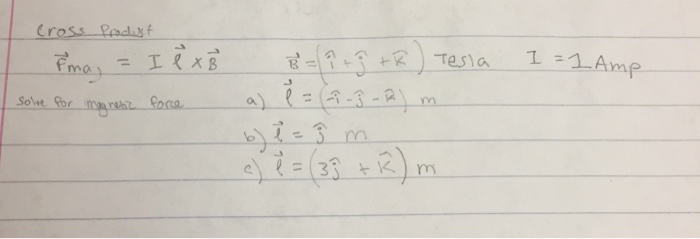 Cross Product
F⃗mag = I ℓ⃗ × B⃗ B⃗ = (î + ĵ + k̂) Tesla I = 1 Amp
Solve for magnetic force a) ℓ⃗ = (-î - ĵ - k̂) m
b) ℓ⃗ = ĵ m
c) ℓ⃗ = (3ĵ + k̂) m